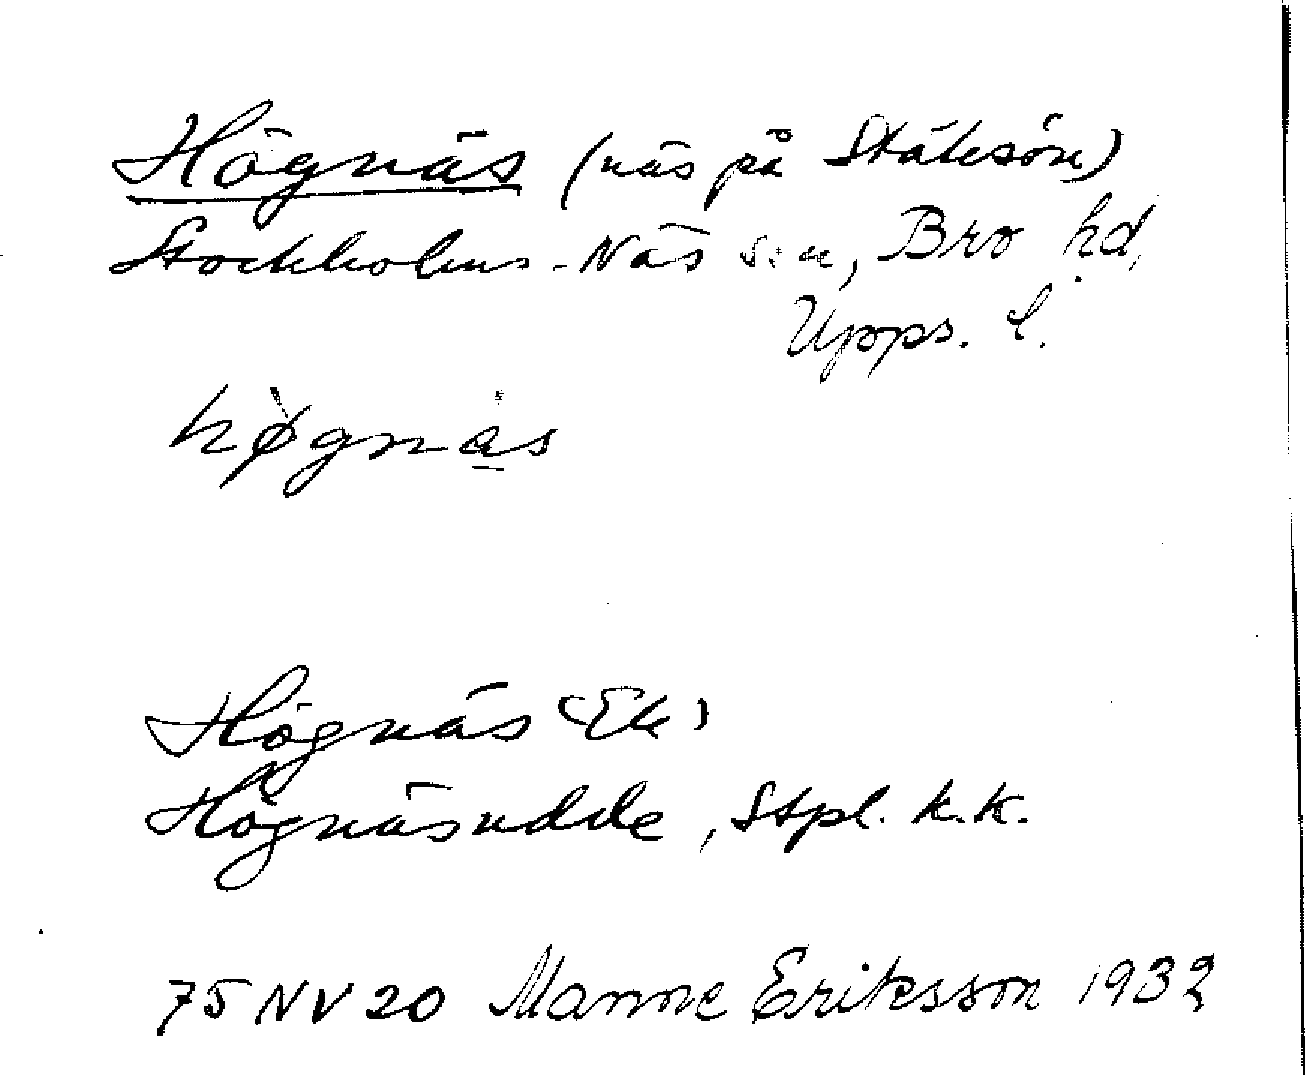 Högnäs (näs på Stäksön)
Stockholms-Näs sn, Bro hd,
Upps. l.
hø̀gnä̱s
Högnäs (Ek)
Högnäsudde, Stpl. k.k.
75 NV 20 Manne Eriksson 1932